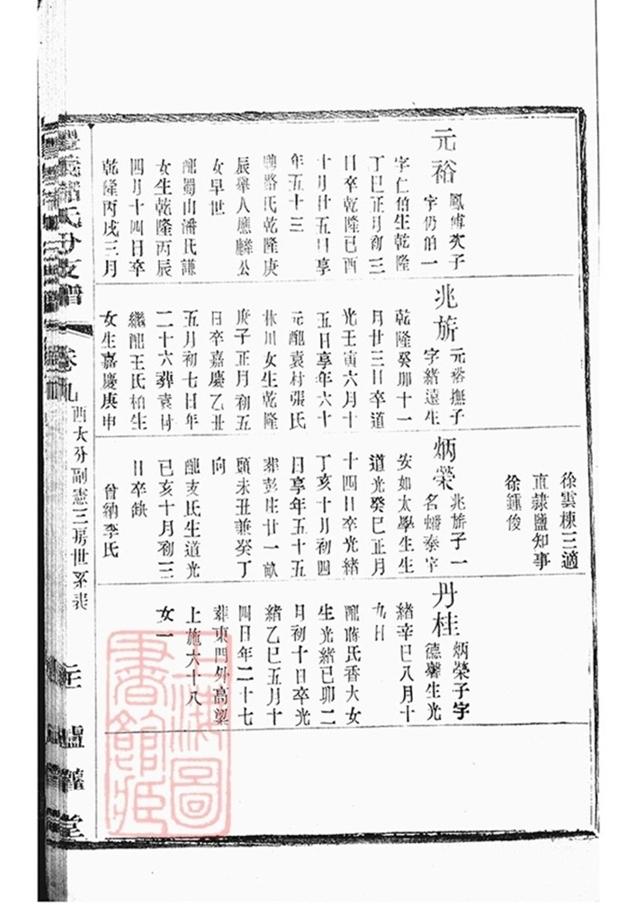 元裕
鳳博次子
字仍伯一
字仁伯生乾隆
丁巳正月初三
日卒乾隆已酉
十月廿五日享
年五十三
路氏乾隆庚
辰舉人應麟公
女早世
配蜀山潘氏謙
女生乾隆丙辰
四月十四日卒
乾隆丙戌三月
兆旂
元裕撫子
字緒遠生
乾隆癸卯十一
月廿三日卒道
光壬寅六月十
五日享年六十
元配袁村張氏
休川女生乾隆
庚子正月初五
日卒嘉慶乙丑
五月初七日年
二十六葬袁村
繼配王氏柏生
女生嘉慶庚申
徐雲棟三適
直隸鹽知事
徐鍾俊
炳榮
兆旂子一
名蟠泰字
安如太學生生
道光癸巳正月
十四日卒光緒
丁亥十月初四
日享年五十五
葬彭庄廿一畝
頭未丑兼癸丁
向
配支氏生道光
已亥十月初三
日卒缺
曾納李氏
丹桂
炳榮子字
德馨生光
緒辛巳八月十
九日
配蔣氏香大女
生光緒已卯二
月初十日卒光
緒乙巳五月十
四日年二十七
葬東門外高㮣
上施六十八
女一
豐義儲氏分支譜
卷九
酉大分副憲三房世系表
堂
上海圖
書館藏